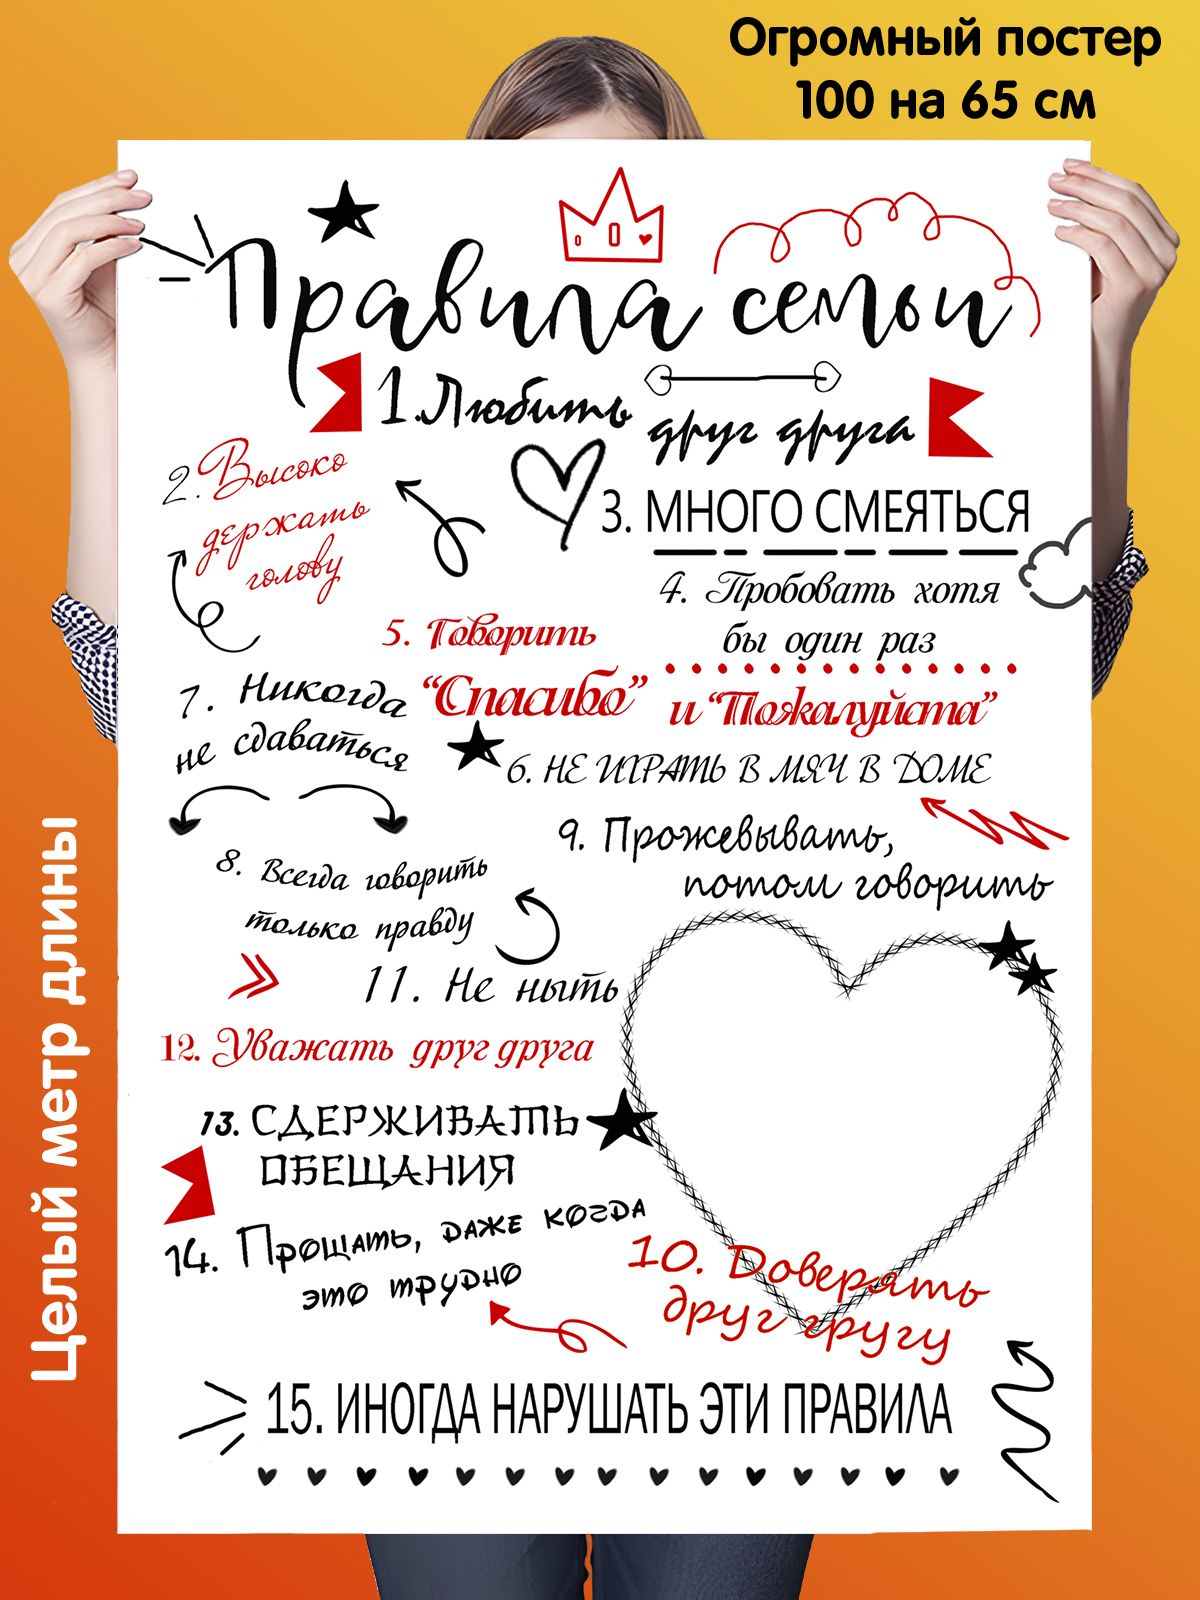 Огромный постер
100 на 65 см
Целый метр длины
Правила семьи
1. Любить
друг друга
2. Высоко
держать
голову
3. МНОГО СМЕЯТЬСЯ
4. Пробовать хотя
бы один раз
5. Говорить
“Спасибо”
и “Пожалуйста”
6. НЕ ИГРАТЬ В МЯЧ В ДОМЕ
7. Никогда
не сдаваться
8. Всегда говорить
только правду
9. Прожевывать,
потом говорить
10. Доверять
друг другу
11. Не ныть
12. Уважать друг друга
13. СДЕРЖИВАТЬ
ОБЕЩАНИЯ
14. Прощать, даже когда
это трудно
15. ИНОГДА НАРУШАТЬ ЭТИ ПРАВИЛА